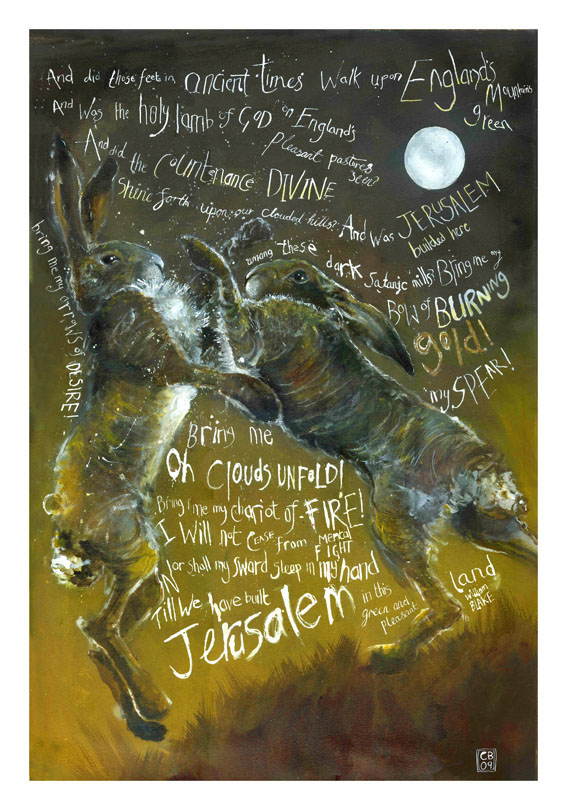 And did those feet in ancient times walk upon England's Mountains green
And was the holy lamb of GOD on England's pleasant pastures seen?
And did the Countenance DIVINE
Shine forth upon our clouded hills? And was JERUSALEM builded here
among these dark Satanic mills? Bring me my
Bow of BURNING
gold!
bring me my arrows of DESIRE!
my SPEAR!
Bring me
Oh CLOUDS UNFOLD!
Bring me my chariot of FIRE!
I Will not CEASE from MENTAL FIGHT
Nor shall my sword sleep in my hand
Till We have built
Jerusalem in this
green and
pleasant
land
William
BLAKE
CB
09